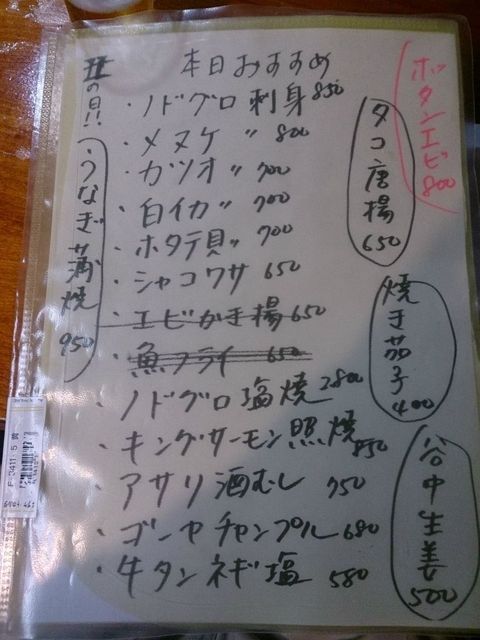 本日おすすめ
・ノドグロ刺身 850
・メヌケ 〃 800
・カツオ 〃 700
・白イカ 〃 700
・ホタテ貝 〃 700
・シャコワサ 650
・エビかき揚 650
・魚フライ 650
・ノドグロ塩焼 2800
・キングサーモン照焼 850
・アサリ酒むし 750
・ゴーヤチャンプル 680
・牛タンネギ塩 580
丑の日!!
・うなぎ蒲焼 950
ボタンエビ 800
タコ唐揚 650
焼き茄子 400
谷中生姜 500